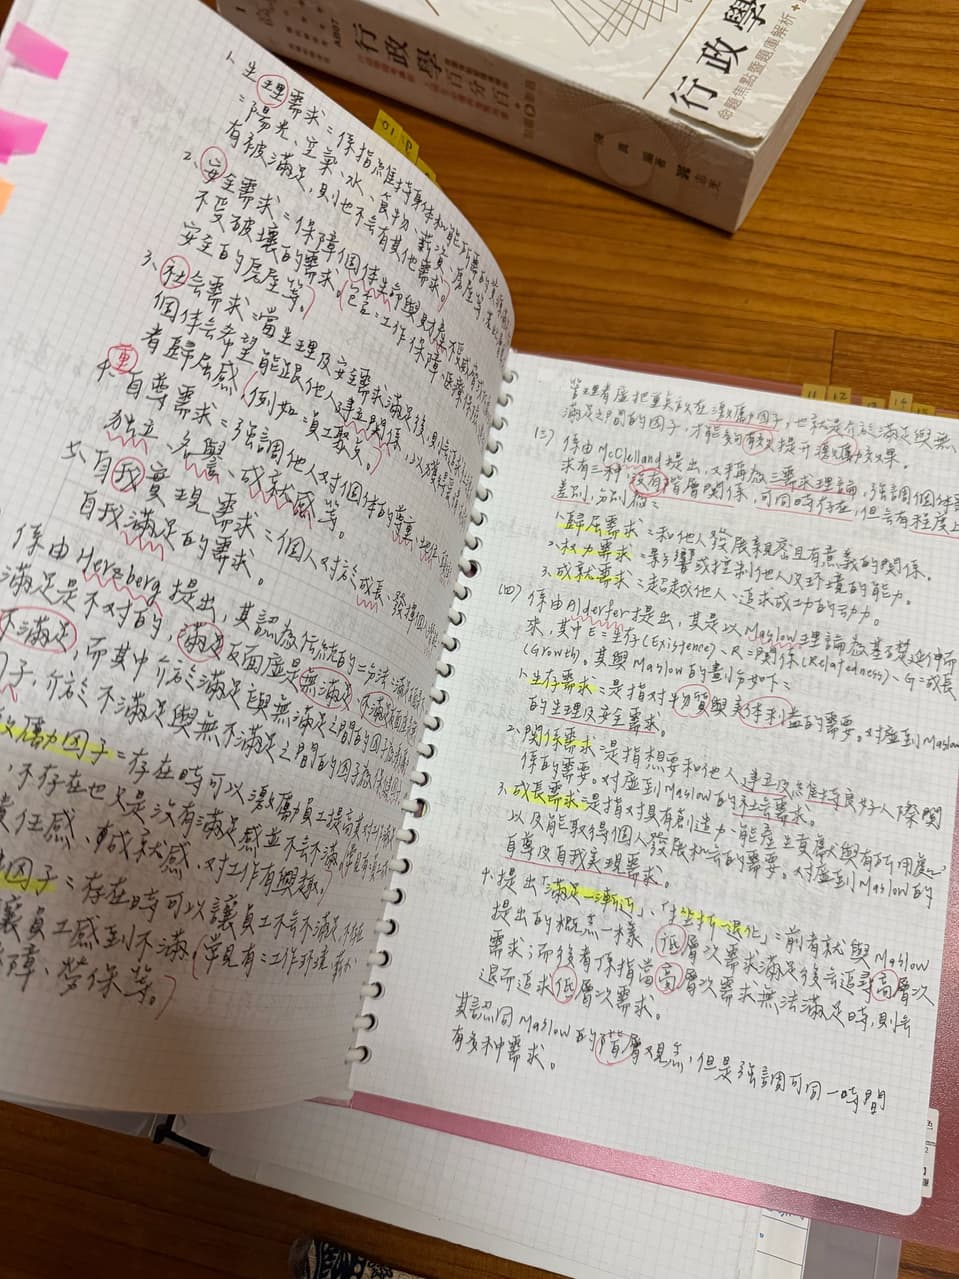 1、生理需求=係指維持身體和能所需的
=陽光、空氣、水、食物、薪資、房屋等,
有被滿足,則也不會有其他需求。
2、安全需求=保障個体生命與財產不受威脅
不受破壞的需求。(包含=工作保障、醫療保險
安全的房屋等。)
3、社會需求=當生理及安全需求滿足後,則
個体會希望能跟他人建立關係,以獲得
者歸屬感(例如=員工聚交。)
4、自尊需求=強調他人對個体的尊重、地位
獨立、名譽、成就感等。
5、自我實現需求=個人對於成長、發揮
自我滿足的需求。
係由Herzberg提出,其認為傳統的二分法
滿足是不對的,滿足反面應是無滿足,不滿足
不滿足,而其中介於滿足與無滿足之間的因子
子,介於不滿足與無不滿足之間的因子為
激勵因子=存在時可以激勵員工提高對工作
,不存在也只是沒有滿足感並不會不滿
責任感、成就感、對工作有興趣。)
因子=存在時可以讓員工不會不滿足
讓員工感到不滿。(常見有=工作環境
障、勞保等。)
管理者應把重點放在激勵因子,也就是介於滿足與無
滿足之間的因子,才能夠有效提升激勵效果。
(三)係由McClelland提出,又稱為三需求理論,強調個体
求有三種,沒有階層關係,可同時存在,但會有程度上
差別,分別為=
1、歸屬需求=和他人發展親密且有意義的關係。
2、权力需求=影響或控制他人及环境的能力。
3、成就需求=超越他人、追求成功的动力。
(四)係由Alderfer提出,其是以Maslow理論為基礎延伸而
來,其中E=生存(Existence)、R=關係(Relatedness)、G=成長
(Growth)。其與Maslow的劃分如下=
1、生存需求=是指对物質與实体利益的需要。对應到Maslow
的生理及安全需求。
2、関係需求=是指想要和他人建立及維持良好人際関
係的需要。对應到Maslow的社会需求。
3、成長需求=是指对具有創造力、能產生貢獻與有所用處
以及能取得個人發展和的需要。对應到Maslow的
自尊及自我实現需求。
4、提出「滿足-漸近」、「挫折-退化」=前者就與Maslow
提出的概念一樣,低層次需求滿足後会追尋高層次
需求;而後者係指當高層次需求無法滿足時,則会
退而追求低層次需求。
其認同Maslow的階層观点,但是強調可同一時間
有多种需求。
行政學
百分百
行政學
命題焦點暨題庫解析
編著
01
11
12
14
15